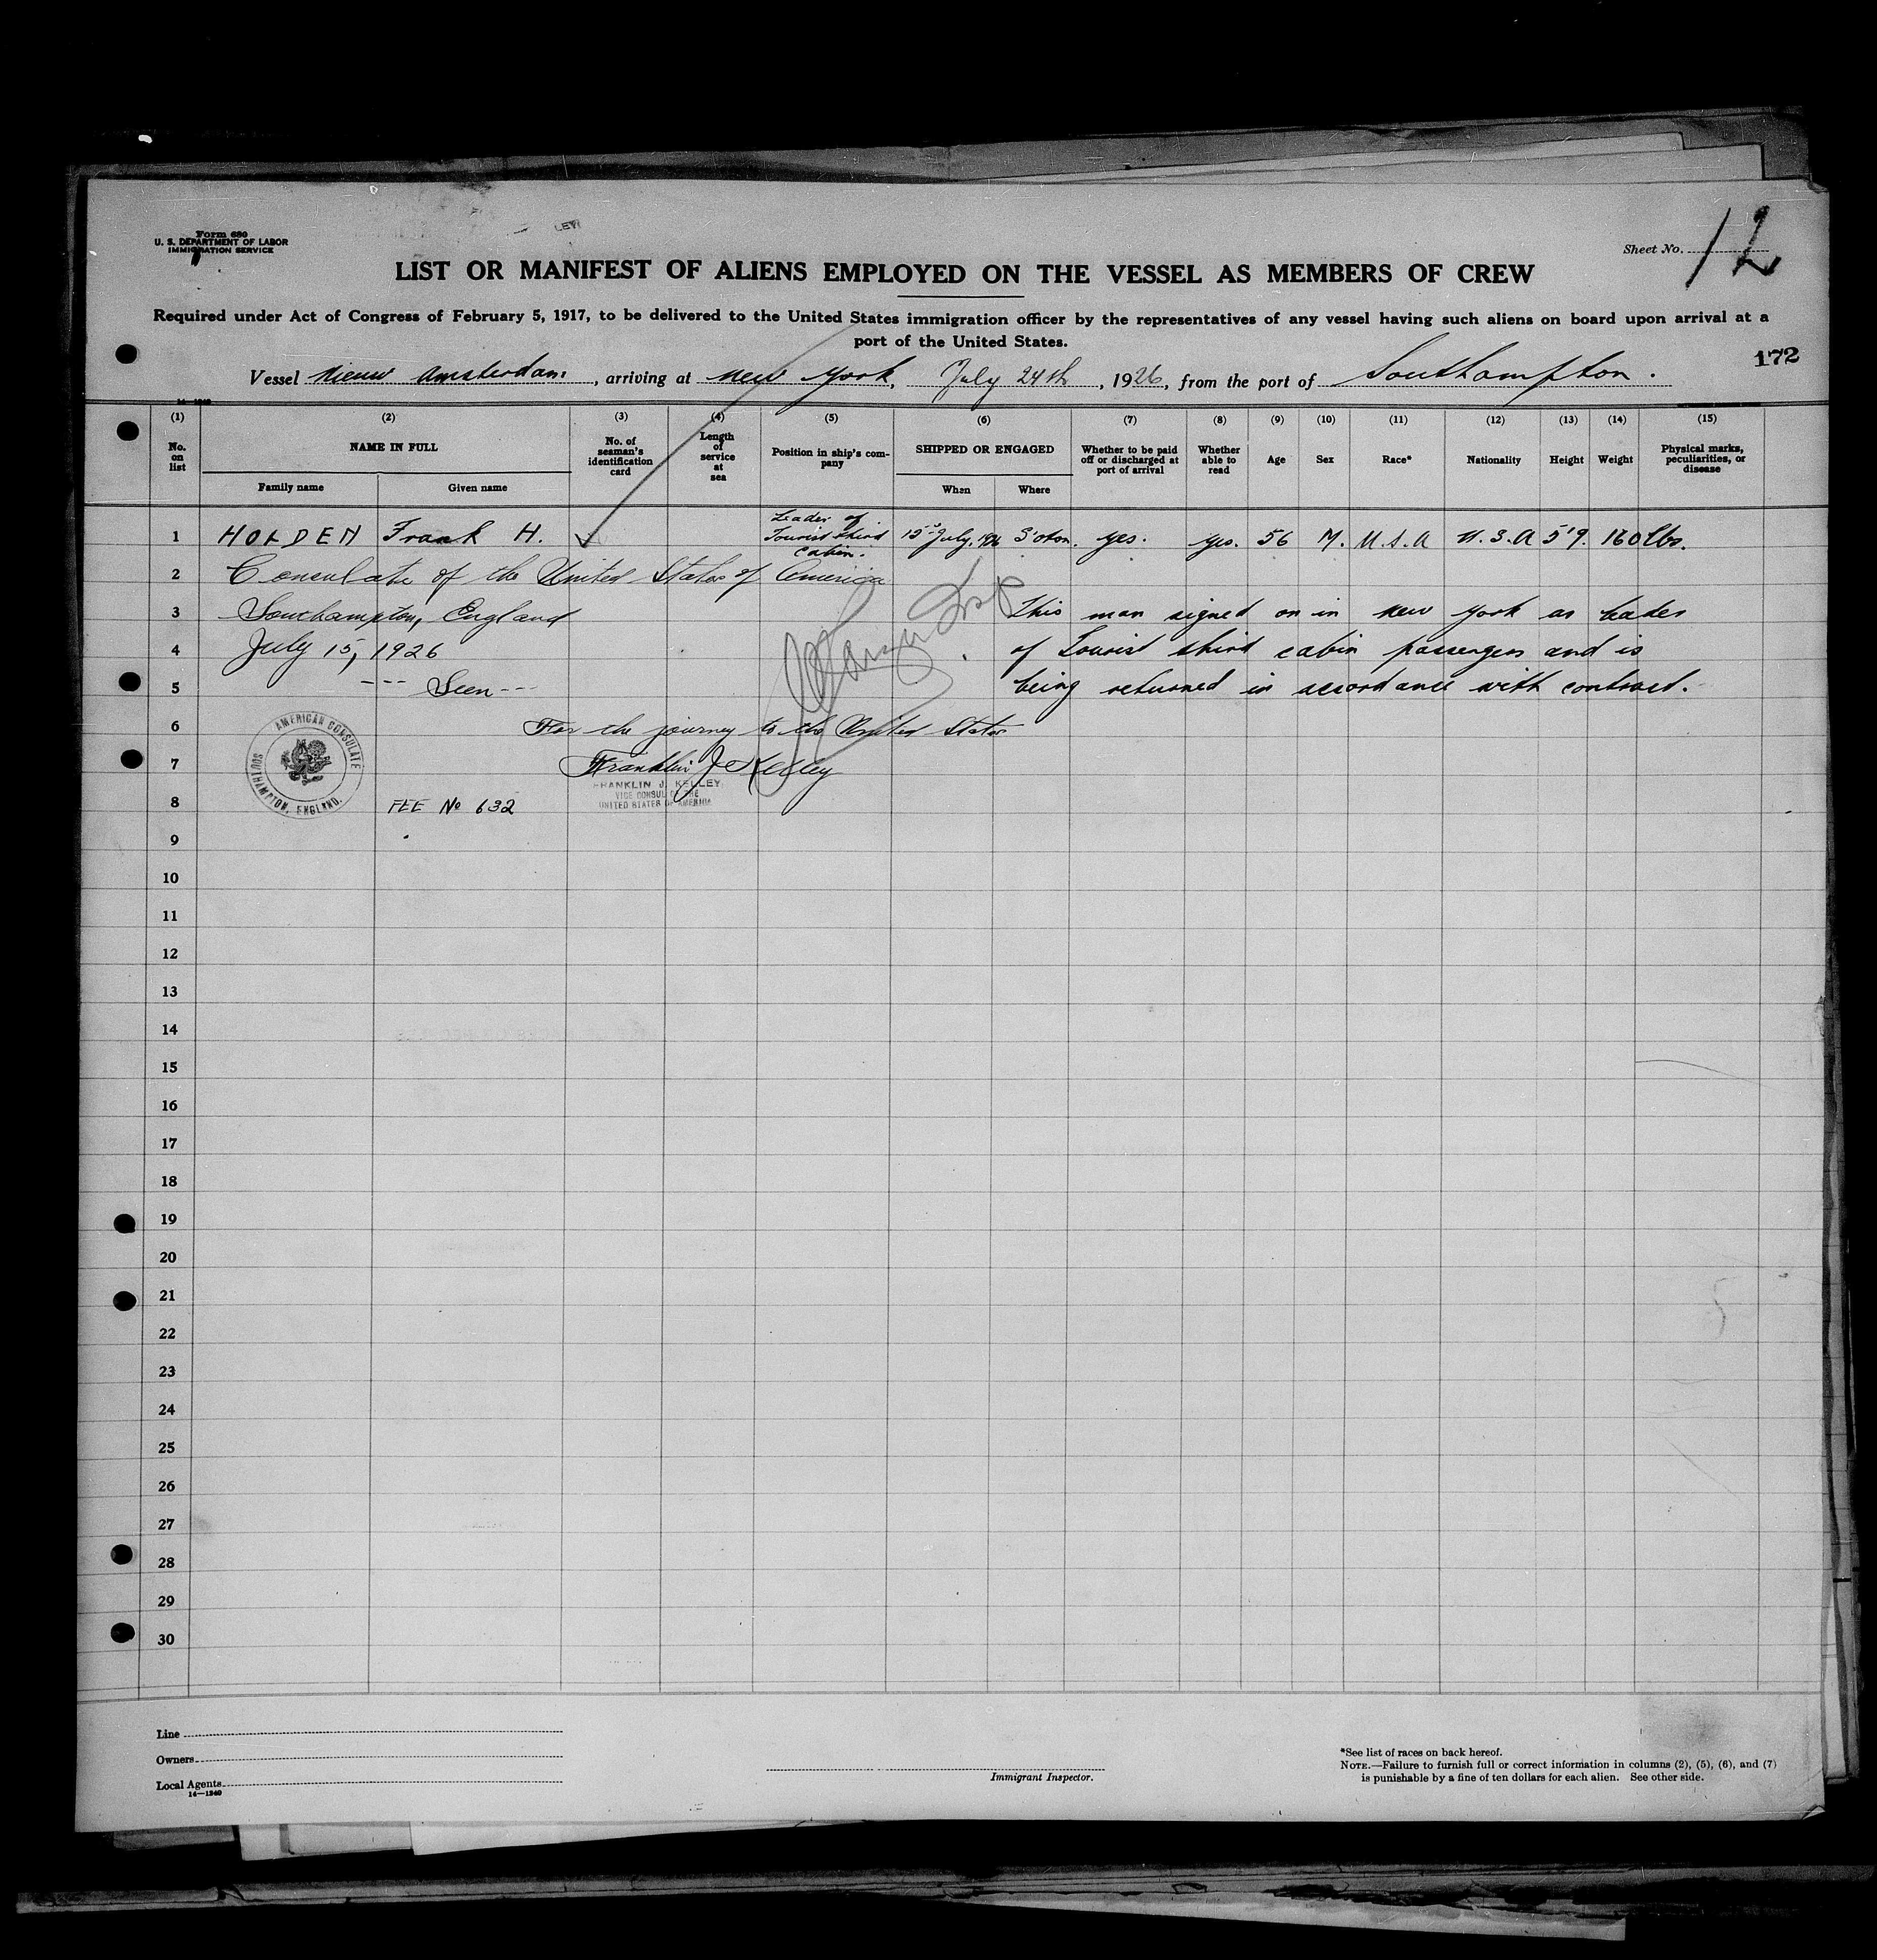 Form 680
U. S. DEPARTMENT OF LABOR
IMMIGRATION SERVICE
LEVI
Sheet No. 12
LIST OR MANIFEST OF ALIENS EMPLOYED ON THE VESSEL AS MEMBERS OF CREW
Required under Act of Congress of February 5, 1917, to be delivered to the United States immigration officer by the representatives of any vessel having such aliens on board upon arrival at a
port of the United States.
172
Vessel Nieuw Amsterdam, arriving at New York, July 24th, 1926, from the port of Southampton.
14—1240
(1) (2) (3) (4) (5) (6) (7) (8) (9) (10) (11) (12) (13) (14) (15)
No. on list
NAME IN FULL
Family name
Given name
No. of seaman's identification card
Length of service at sea
Position in ship's com-
pany
SHIPPED OR ENGAGED
When
Where
Whether to be paid off or discharged at port of arrival
Whether able to read
Age
Sex
Race*
Nationality
Height
Weight
Physical marks, peculiarities, or disease
1 HOLDEN Frank H. ✓ Leader of Tourist third cabin. 15 July, 1926 S'oton. yes. yes. 56 M. U.S.A U.S.A 5'9. 160 lbs.
2 Consulate of the United States of America
3 Southampton, England This man signed on in New York as leader
4 July 15, 1926 of Tourist third cabin passengers and is
5 --- Seen --- being returned in accordance with contract.
6 For the journey to the United States
7 Franklin J Kelley
FRANKLIN J. KELLEY
VICE CONSUL OF THE
UNITED STATES OF AMERICA
AMERICAN CONSULATE
SOUTHAMPTON, ENGLAND.
8 FEE No 632
9
10
11
12
13
14
15
16
17
18
19
20
21
22
23
24
25
26
27
28
29
30
Line
Owners
Local Agents
14—1240
Immigrant Inspector.
*See list of races on back hereof.
NOTE.—Failure to furnish full or correct information in columns (2), (5), (6), and (7)
is punishable by a fine of ten dollars for each alien. See other side.